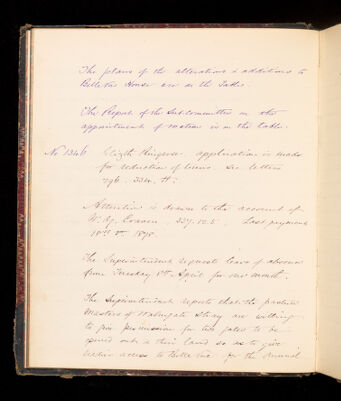 The plans of the alterations & additions to
Belle Vue House are on the Table.
The Report of the Subcommittee on the
appointment of matron is on the table.
No 1346 Elizth application is made
for reduction of terms. See letters
296. 334.
Attention is drawn to the account of
W. Hy. 337.10.5. Last payment
1878.
The Superintendent requests leave of absence
from Tuesday 1st April for one month.
The Superintendent reports that the pasture
Masters of Walmgate Stray are willing
to give permission for two gates to be
opened onto their land so as to give
better access to Belle Vue for the Annual